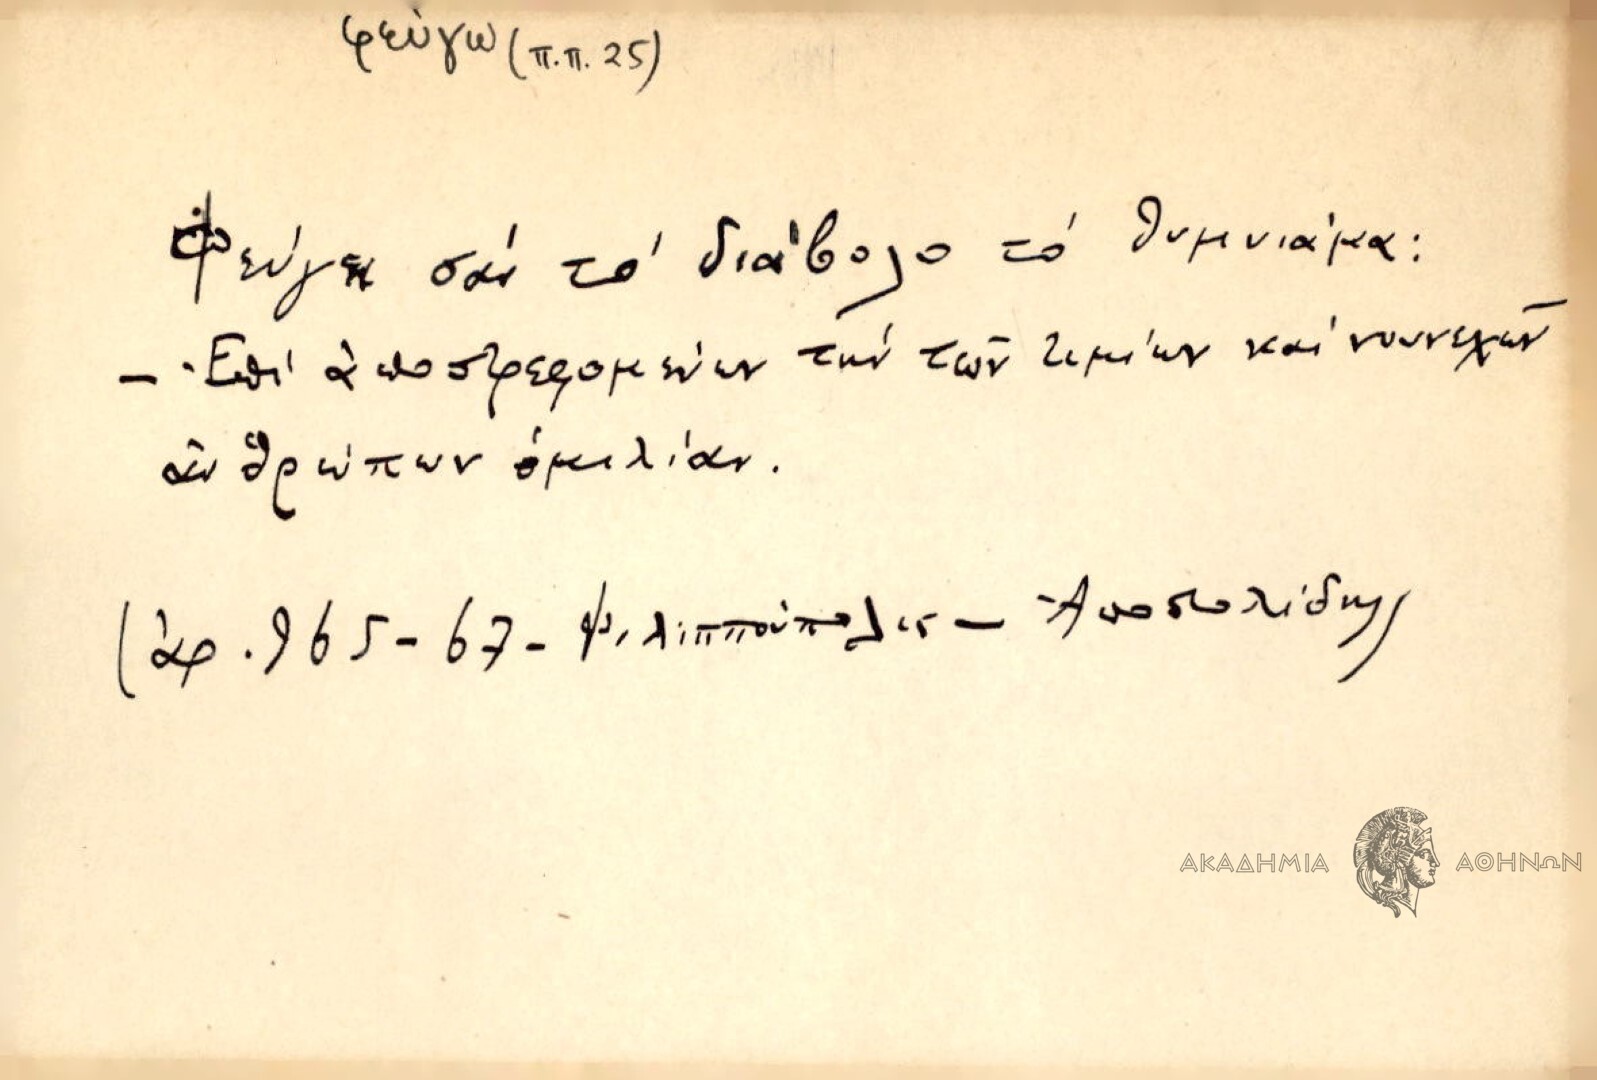 φεύγω (π.π. 25)
Φεύγει σάν τό διάβολο τό θυμνιάμα:
– Ἐπί ἀποστρεφομένων τήν τῶν τιμίων καί νουνεχῶν
ἀνθρώπων ὁμιλίαν.
(ἀρ. 965-67- Φιλιππούπολις – Ἀποστολίδης)
ΑΚΑΔΗΜΙΑ ΑΘΗΝΩΝ